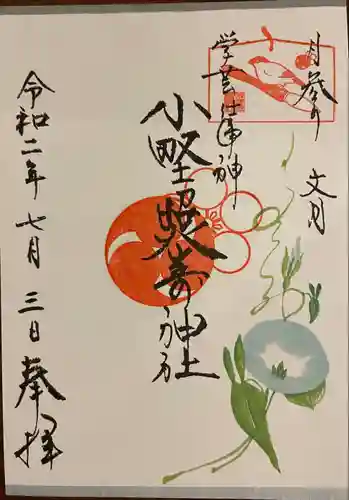 月参り 文月
学芸の神
小野照崎神社
令和二年七月三日 奉拝